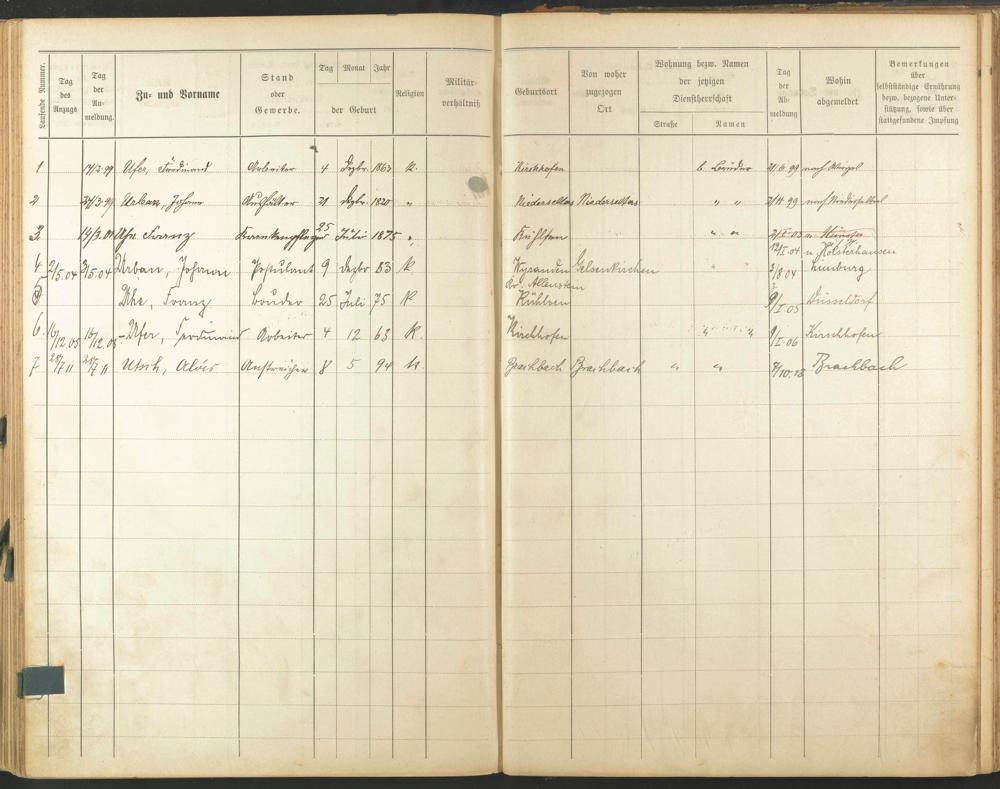 Laufende Nummer.
Tag des Anzugs
Tag der An- meldung.
Zu- und Vorname
Stand oder Gewerbe.
Tag Monat Jahr
der Geburt
Religion
Militär- verhältniß
Geburtsort
Von woher zugezogen Ort
Wohnung bezw. Namen der jetzigen Dienstherrschaft
Straße Namen
Tag der Ab- meldung
Wohin abgemeldet
Bemerkungen
über
selbstständige Ernährung
bezw. bezogene Unter-
stützung, sowie über
stattgefundene Impfung
1 14/2 99 Ufer, Ferdinand Arbeiter 4 Dezbr. 1863 k. Kirchhofen b. Brüder 21/6 99
2 24/3 99 Urban, Johann 21 Dezbr. 1820 " Niederselters Niederselters " " 2/11 99 nach
3. 14/3.01 Uhe Franz Krankenpfleger 25 Juli 1875 " Kühlsen " "
12/I.04 n. Holsterhausen
4 2/5.04 3/5.04 Urban, Johann Postulant 9 Dezbr 83 k. Gelsenkirchen " " 3/8 04 Limburg
Kr. Allenstein
5 Uhe, Franz Bruder 25 Juli 75 k. Kühlsen 9/I.05 Düsseldorf
6. 16/12.05 16/12.05 Ufer, Ferdinand Arbeiter 4 12 63 k. Kirchhofen " " 9/I.06 Kirchhofen
7 28/7 11 28/7 11 Utsch, Alois Anstreicher 8 5 94 k. Brachbach Brachbach " " 7/10.13 Brachbach